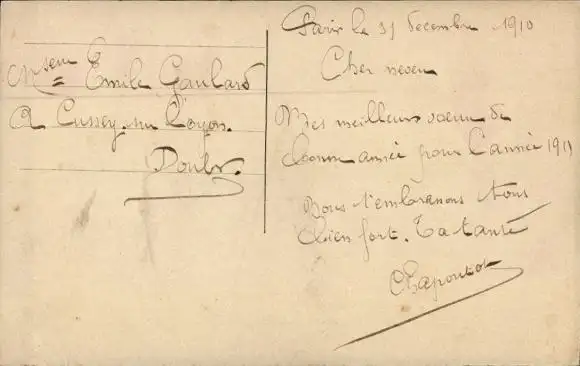 Mseur Emile Gaulard
A Cussey sur l'ognon.
Doubs.
Paris le 31 decembre 1910
Cher neveu
Mes meilleurs voeux de
bonne année pour l'année 1911
Nous t'embrassons tous
bien fort. Ta tante